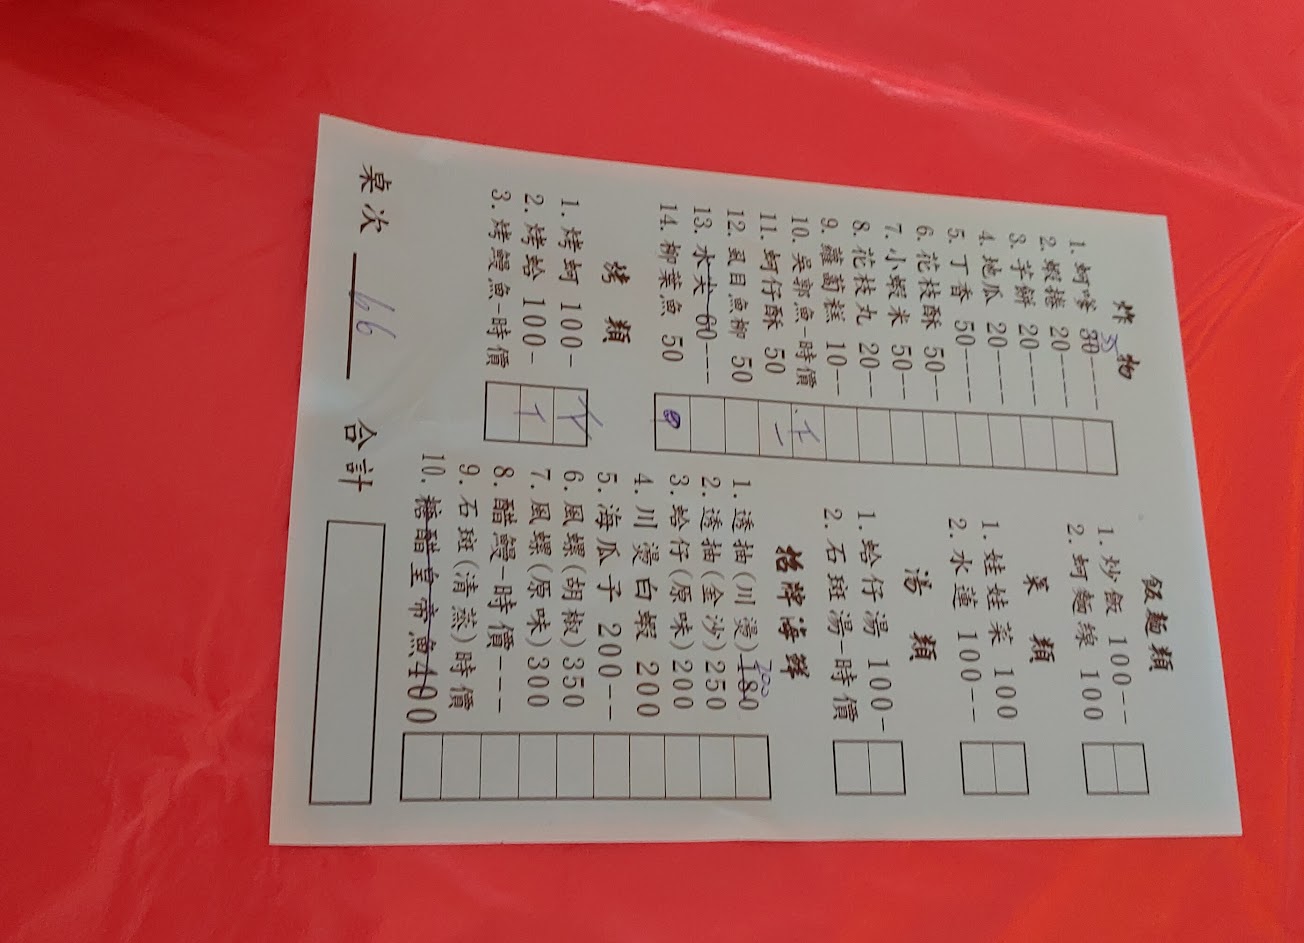 炸物
1. 蚵嗲 30---- 35
2. 蝦捲 20----
3. 芋餅 20----
4. 地瓜 20----
5. 丁香 50----
6. 花枝酥 50--
7. 小蝦米 50--
8. 花枝丸 20--
9. 蘿蔔糕 10--
10. 吳郭魚-時價
11. 蚵仔酥 50 一
12. 虱目魚柳 50
13. 水尖 60---
14. 柳葉魚 50
烤類
1. 烤蚵 100-
2. 烤蛤 100-
3. 烤鰻魚-時價
飯麵類
1. 炒飯 100--
2. 蚵麵線 100
菜類
1. 娃娃菜 100
2. 水蓮 100--
湯類
1. 蛤仔湯 100-
2. 石斑湯-時價
招牌海鮮
1. 透抽(川燙)180 200
2. 透抽(金沙)250
3. 蛤仔(原味)200
4. 川燙白蝦 200
5. 海瓜子 200--
6. 風螺(胡椒)350
7. 風螺(原味)300
8. 醋鰻-時價---
9. 石斑(清蒸)時價
10. 糖醋皇帝魚400
桌次 66 合計